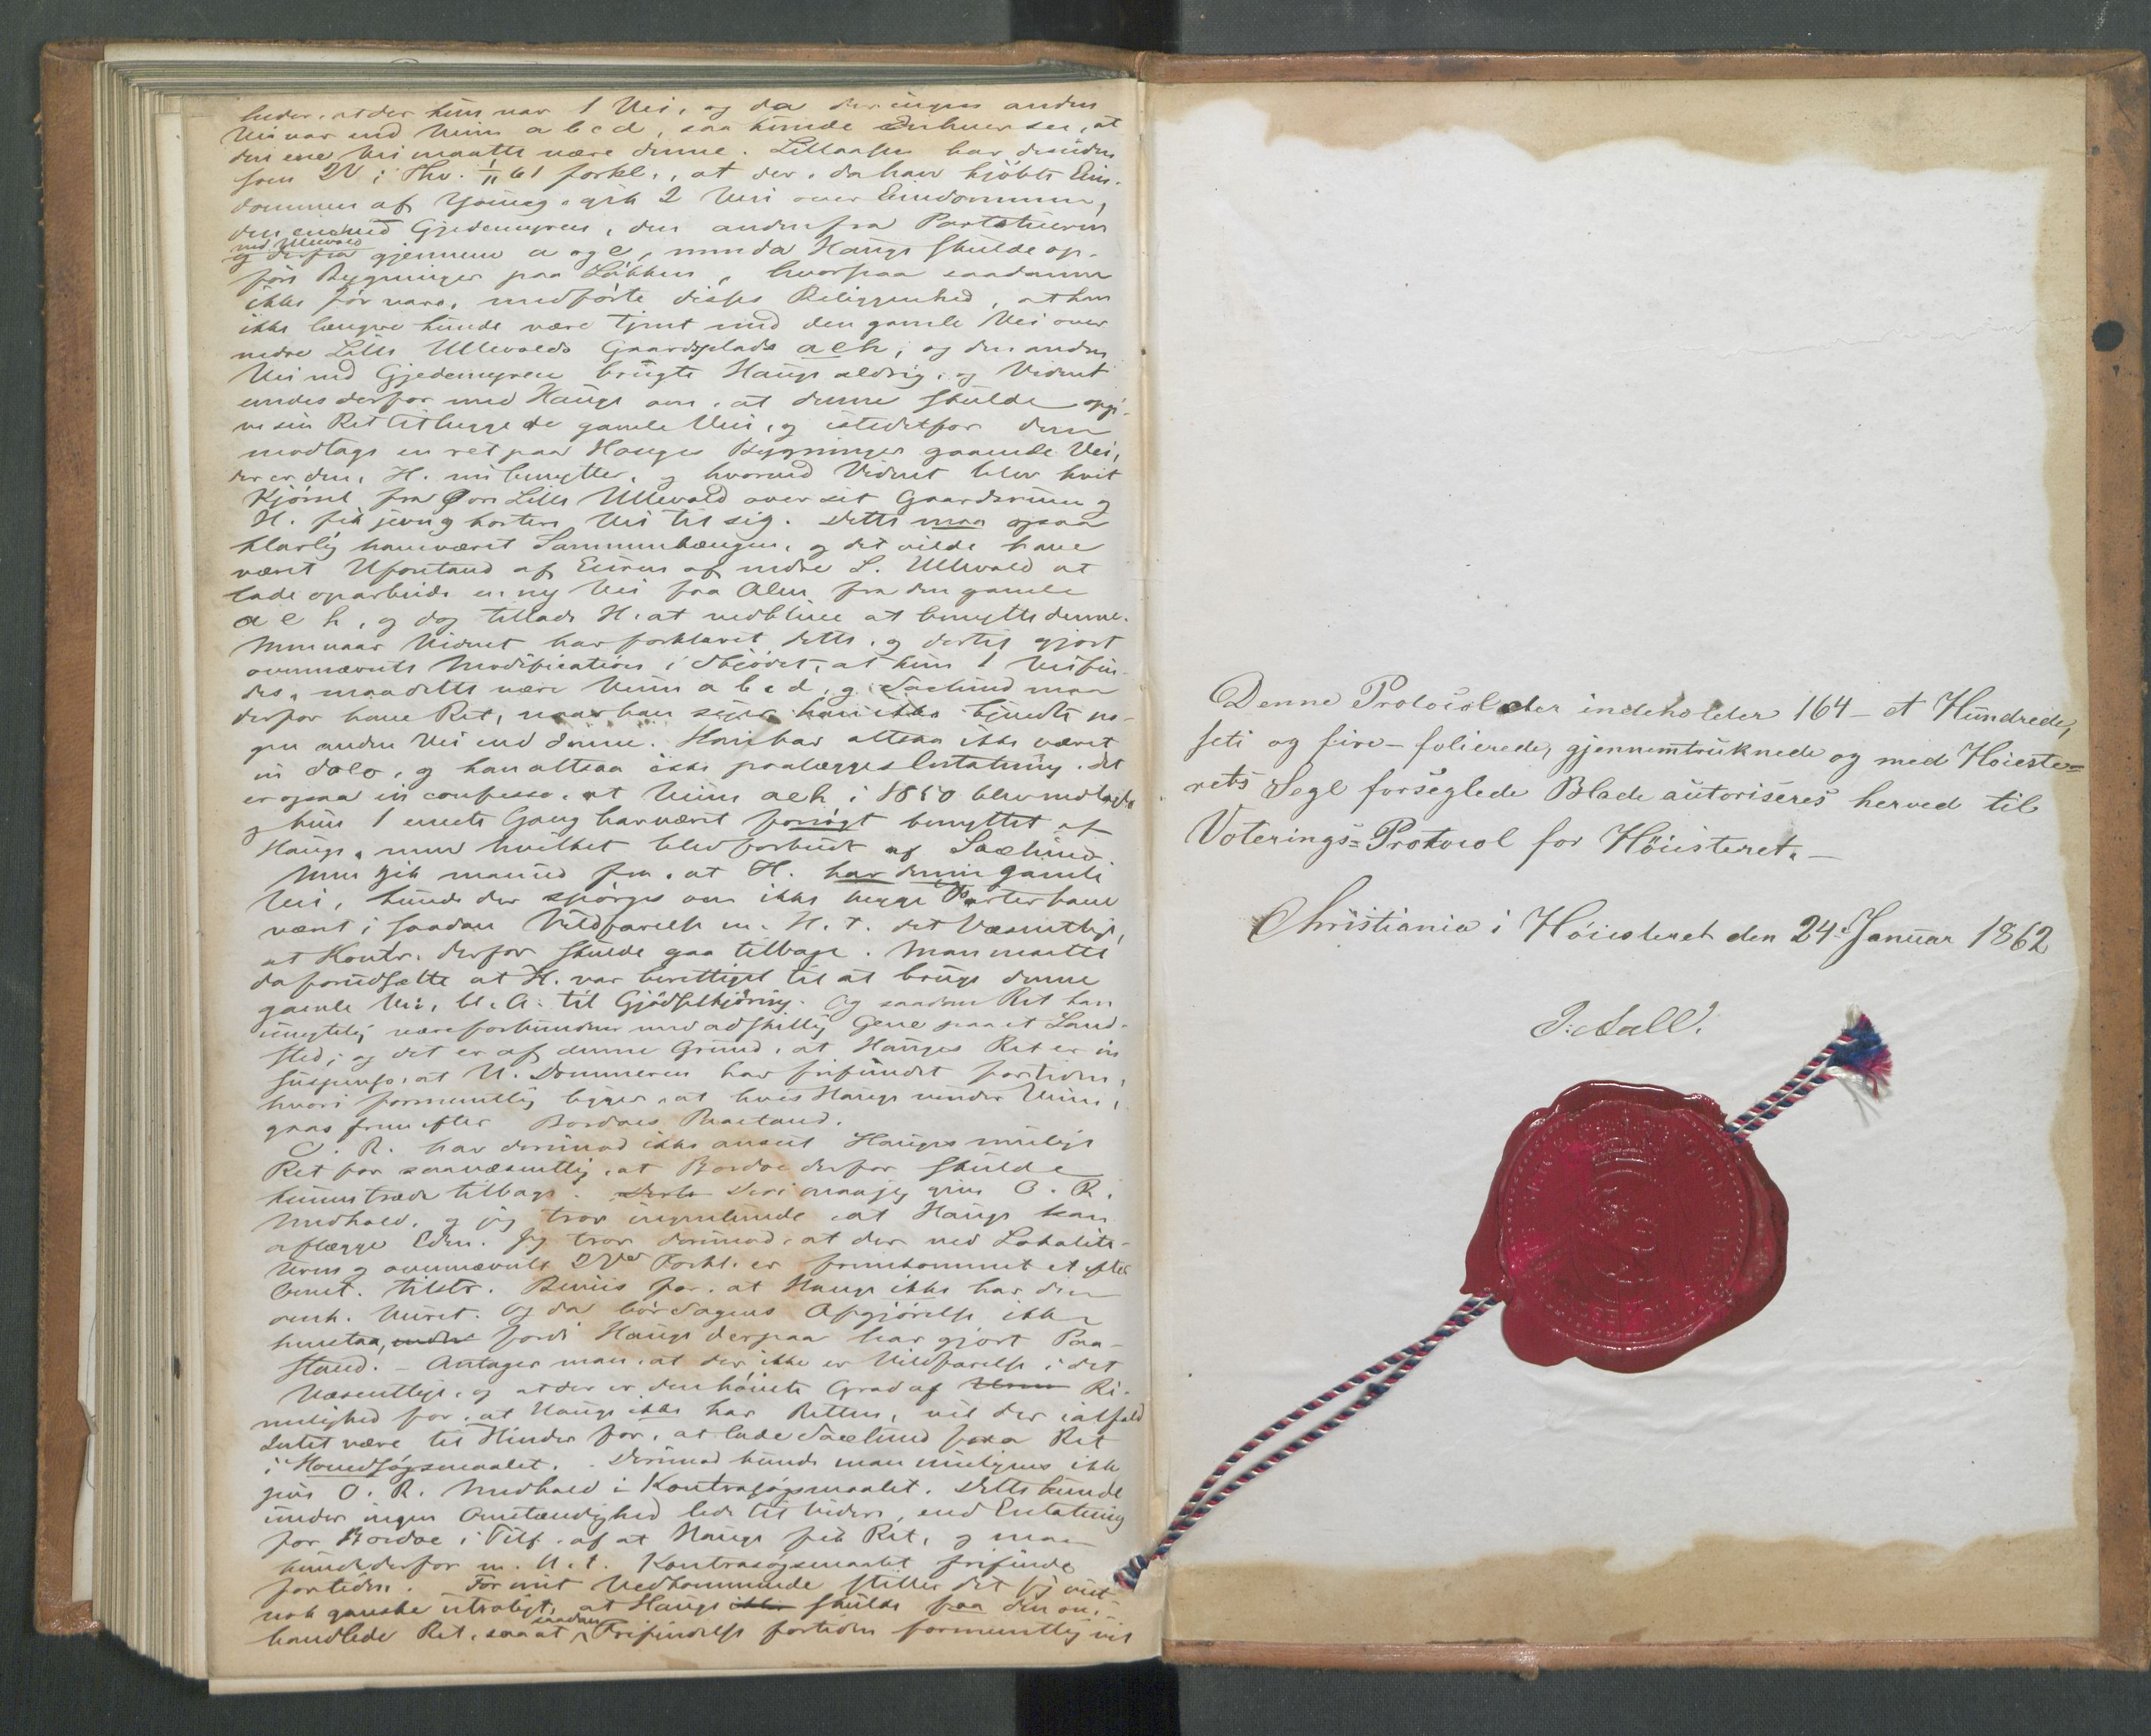 at der kun var 1 Vei, og da der ingen anden
Vei var end Veien a b c d, saa kunde Enhver see, at
den ene Vei maatte være denne. Lillaasen har desuden
som 2V i Thv. 1/11 61 forkl., at der, da han kjöbte Eien-
dommen af Young, gik 2 Veie over Eiendommen,
den ene ved Gjedemyren, den anden fra Portstuen
ved Ullevold
og derfra gjennem a og e, men da Hauge skulde op-
före Bygninger paa Lökken, hvorpaa saadanne
ikke för vare, medförte disses Beliggenhed, at han
ikke længere kunde være tjent med den gamle Vei over
nedre Lille Ullevolds Gaardsplads aeh, og den anden
Vei ved Gjedemyren brugte Hauge aldrig, og Vidnet
enedes derfor med Hauge om, at denne skulde opgi-
ve sin Ret til begge de gamle Veie, og istedetfor dem
modtage en ret paa Hauges Bygninger gaaende Vei,
der er den, H. nu benytter, og hvorved Vidnet blev kvit
Kjörsel fra Övre Lille Ullevold over sit Gaardsrum og
H. fik jevn og kortere Vei til sig. Dette maa ogsaa
klarlig have været Sammenhængen, og det vilde have
været Uforstand af Eieren af nedre L. Ullevold at
lade oparbeide en ny Vei faa Alen fra den gamle
a e h, og dog tillade H. at vedblive at benytte denne.
Men naar Vidnet har forklaret dette, og dertil gjort
ovennævnte Modification i Skjödet, at kun 1 Vei fin-
des, maa dette være Veien a b c d, og Saelund maa
derfor have Ret, naar han siger han ikke kjendte no-
gen anden Vei end denne. Han har altsaa ikke været
in dolo, og kan altsaa ikke paalægges Erstatning. Det
er ogsaa in confesso, at Veien aeh i 1850 blev nedlagt
og kun 1 eneste Gang har været forsögt benyttet af
Hauge, men hvilket blev forbudt af Saelund.
Men gik man ud fra, at H. har denne gamle
Vei, kunde der spörges om ikke begge Parter have
været i saadan Vildfarelse m. H. t. det Væsentlige,
at Kontr. derfor skulde gaa tilbage. Man maatte
da forudsætte at H. var berettiget til at bruge denne
gamle Vei, bl. A. til Gjödselkjöring. Og saadan Ret kan
unegtelig være forbunden med adskillig Gene paa et Land-
sted; og det er af denne Grund, at Hauges Ret er in
suspenso, at U. Dommeren har frifundet fortiden,
hvori formentlig ligger, at hvis Hauge vinder Veien,
gaaes frem efter Bordoes Paastand.
O. R. har derimod ikke anseet Hauges mulige
Ret for saa væsentlig, at Bordoe derfor skulde
kunne træde tilbage. Deri maa jeg give O. R.
Medhold, og jeg tror ingenlunde at Hauge kan
aflægge Eden. Jeg tror derimod, at der ved Lokalite-
terne og ovennævnte 2Vs Forkl. er fremkommet et efter
Omst. tilstr. Beviis for, at Hauge ikke har den
omh. Veiret. Og da bör Sagens Afgjörelse ikke
henstaa, fordi Hauge derpaa har gjort Paa-
stand. – Antager man, at der ikke er Vildfarelse i det
Væsentlige, og at der er den höieste Grad af Ri-
melighed for, at Hauge ikke har Retten, vil der ialfald
Intet være til Hinder for, at lade Saelund faa Ret
i Hovedsögsmaalet. Derimod kunde man muligens ikke
give O. R. Medhold i Kontrasögsmaalet. Dette kunde
under ingen Omstændighed lede til videre, end Erstatning
for Bordoe i Tilf. af at Hauge fik Ret, og man
kunde derfor m. H. t. Kontrasögsmaalet frifinde
fortiden. For mit Vedkommende stiller det sig vist-
nok ganske utroligt, at Hauge skulde faa den om-
saadan
handlede Ret, saa at Frifindelse fortiden formentlig vil
Denne Protocol der indeholder 164 – et Hundrede,
seti og fire – folierede, gjennemtruknede og med Höieste=
rets Segl forseglede Blade autoriseres herved til
Voterings=Protocol for Höiesteret. –
Christiania i Höiesteret den 24. Januar 1862
J: Aall.